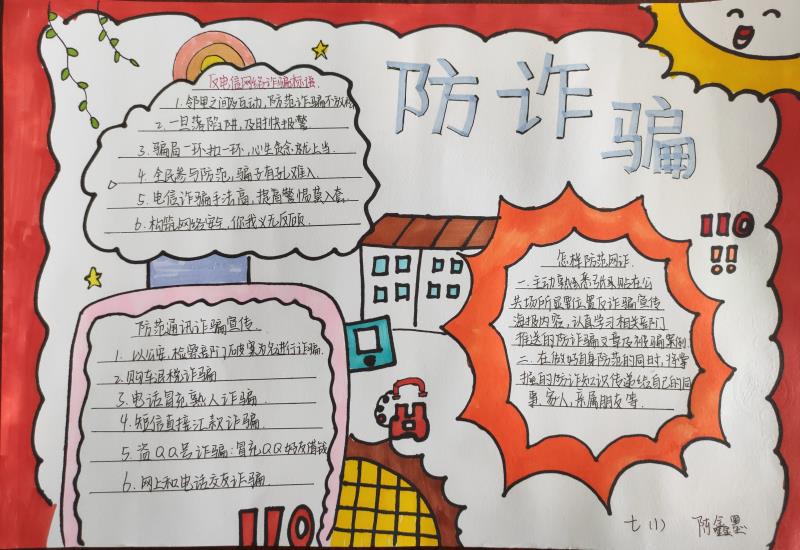 防诈骗
反电信网络诈骗标语
1. 邻里之间及互动, 防范诈骗不放
2. 一旦落陷阱, 及时快报警
3. 骗局一环扣一环, 心生贪念就上当.
4. 全民参与防范, 骗子有孔难入
5. 电信诈骗手法高, 提高警惕莫入套
6. 构筑网络安全, 你我义无反顾.
防范通讯诈骗宣传.
1. 以公安, 检察部门破案为名进行诈骗.
2. 购车退税诈骗
3. 电话冒充熟人诈骗
4. 短信直接汇款诈骗
5. 盗QQ号诈骗: 冒充QQ好友借钱
6. 网上和电话交友诈骗
110
110!!
怎样防范网诈.
一. 主动熟悉张贴在公
共场所显要位置反诈骗宣传
海报内容, 认真学习相关部门
推送的防诈骗文章及被骗案例
二. 在做好自身防范的同时, 将掌
握的防诈知识传递给自己的同
事, 家人, 亲属朋友等.
七 (1) 陈鑫墨